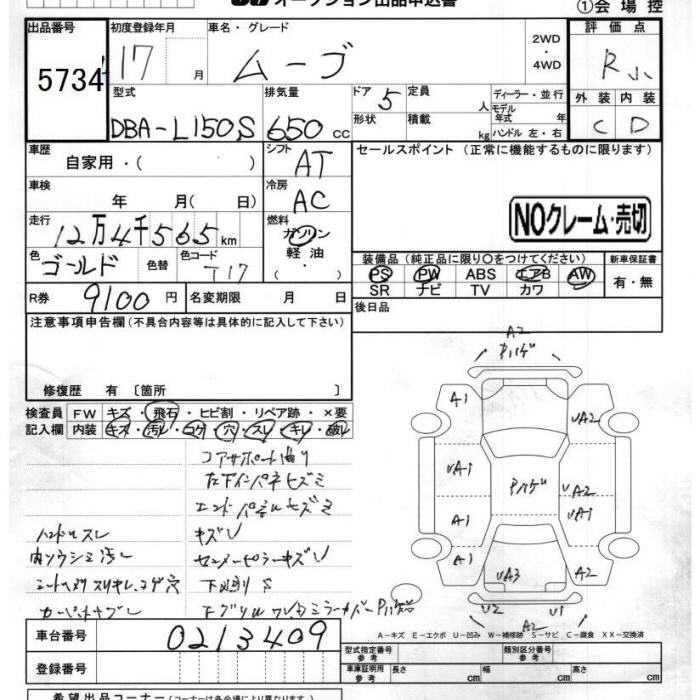 オークション出品申込書
①会場控
出品番号
5734
初度登録年月
17 月
車名・グレード
ムーブ
2WD
・
4WD
評価点
R 小
型式
DBA-L150S
排気量
650 cc
ドア 5
形状
定員 人
積載 kg
ディーラー・並行
モデル
年式 年
ハンドル 左・右
外装 内装
C D
車歴
自家用・( )
シフト
AT
セールスポイント (正常に機能するものに限ります)
NOクレーム・売切
車検
年 月( 日)
冷房
AC
走行
12万4千565km
燃料
ガソリン
軽油・
( )
色
ゴールド
色替
色コード
T17
装備品 (純正品に限り○をつけてください)
PS PW ABS エアB AW
SR ナビ TV カワ
新車保証書
有・無
R券 9100 円
名変期限 月 日
後日品
注意事項申告欄(不具合内容等は具体的に記入して下さい)
修復歴 有 〔箇所 〕
検査員
記入欄
FW キズ・飛石・ヒビ割・リペア跡・×要
内装 キズ・汚レ・コゲ・穴・スレ・キレ・破レ
コアサポート曲り
左下インパネヒズミ
エンドパネルヒズミ
ハンドルスレ
キズU
内ソウシミ汚レ
センターピラーキズU
下廻りS
A2
Pハゲ
A1
UA2
UA1
Pハゲ
A2
UA1
A1
A1
UA3
UA2
U2
U1
A2
A-キズ E-エクボ U-凹み W-補修跡 S-サビ C-腐食 XX-交換済
車台番号
0213409
登録番号
型式指定番号
参考
類別区分番号
参考
車庫証明用
参考
長さ cm 幅 cm 高さ cm
希望出品コーナー(コーナーは各会場により異なります。)